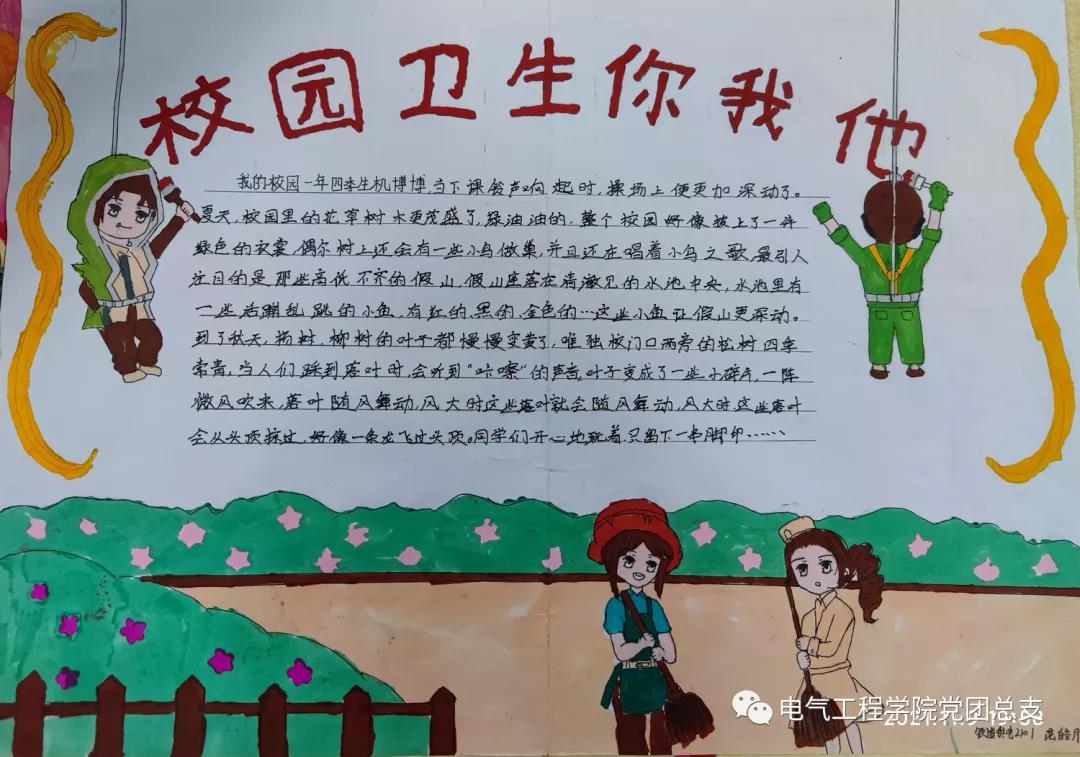 校园卫生你我他
我的校园一年四季生机博博,当下课铃声响起时,操场上便更加深动了。
夏天,校园里的花草树木更茂盛了,绿油油的,整个校园好像披上了一件
绿色的衣裳,偶尔树上还会有一些小鸟做巢,并且还在唱着小鸟之歌,最引人
注目的是那些高低不齐的假山,假山座落在清澈见的水池中央,水池里有
一些活蹦乱跳的小鱼,有红的,黑的,金色的…这些小鱼让假山更深动。
到了秋天,杨树,柳树的叶子都慢慢变黄了,唯独校门口两旁的松树四季
常青,当人们踩到落叶时,会听到“咔嚓”的声音,叶子变成了一些小碎片,一阵
微风吹来,落叶随风舞动,风大时这些落叶就会随风舞动,风大时这些落叶
会从头顶掠过,好像一条龙飞过头顶。同学们开心地玩着,只留下一串脚印……
电气工程学院党团总支
铁道供电2101